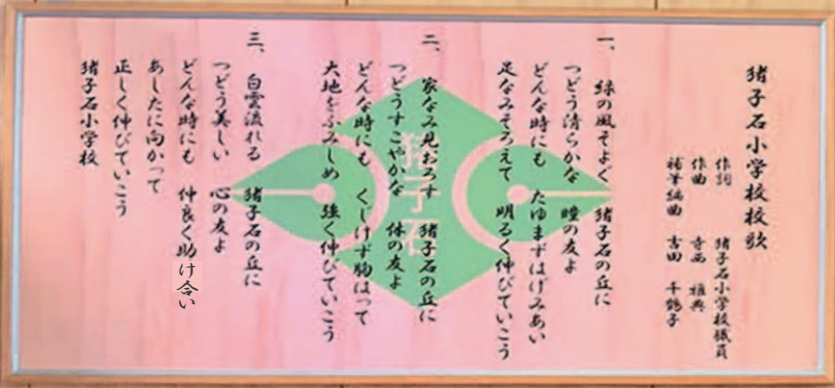 猪子石小学校校歌
作詞 猪子石小学校職員
作曲 寺西 雅典
補筆編曲 吉田 千鶴子
一、 緑の風そよぐ 猪子石の丘に
つどう清らかな 瞳の友よ
どんな時にも たゆまずはげみあい
足なみそろえて 明るく伸びていこう
二、 家なみ見おろす 猪子石の丘に
つどうすこやかな 体の友よ
どんな時にも くじけず胸はって
大地をふみしめ 強く伸びていこう
三、 白雲流れる 猪子石の丘に
つどう美しい 心の友よ
どんな時にも 仲良く助け合い
あしたに向かって
正しく伸びていこう
猪子石小学校
猪子石